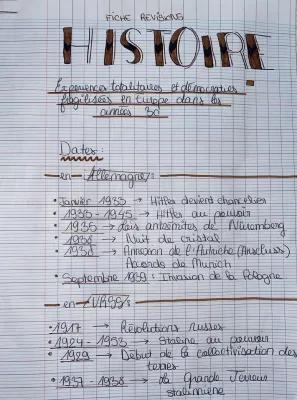 FICHE REVISIONS
HISTOIRE
Expériences totalitaires et démocraties
fragilisées en Europe dans les
années 30
Dates :
en Allemagne :
• Janvier 1933 → Hitler devient chancelier
• 1933 - 1945 → Hitler au pouvoir
• 1935 → lois antisémites de Nuremberg
• 1938 → Nuit de cristal
• 1938 → Annexion de l'Autriche (Anschluss)
Accords de Munich
• Septembre 1939 : Invasion de la Pologne
en URSS :
• 1917 → Révolutions russes
• 1924 - 1953 → Staline au pouvoir
• 1929 → Début de la collectivisation des
terres
• 1937 - 1938 → La Grande Terreur
stalinienne